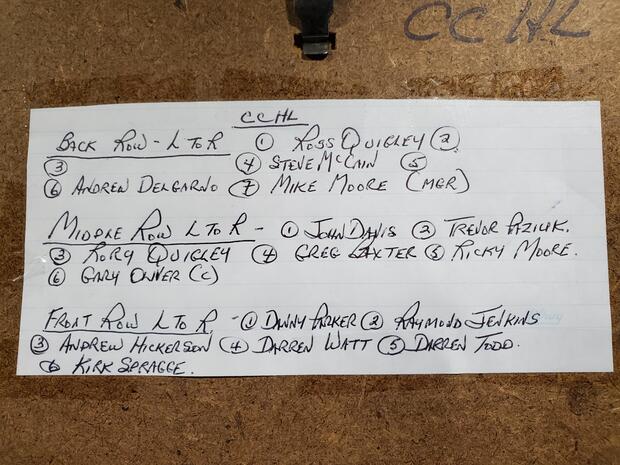 CCHL
CCHL
BACK ROW - L TO R ① ROSS QUIGLEY ②
③ ④ STEVE MCCAIN ⑤
⑥ ANDREW DELGARNO ⑦ MIKE MOORE (MGR)
MIDDLE ROW L TO R - ① JOHN DAVIS ② TREVOR
③ RORY QUIGLEY ④ GREG BAXTER ⑤ RICKY MOORE.
⑥ GARY OLIVER (C)
FRONT ROW L TO R - ① DANNY PARKER ② RAYMOND JENKINS
③ ANDREW HICKERSON ④ DARREN WATT ⑤ DARREN TODD.
⑥ KIRK SPRAGGE.